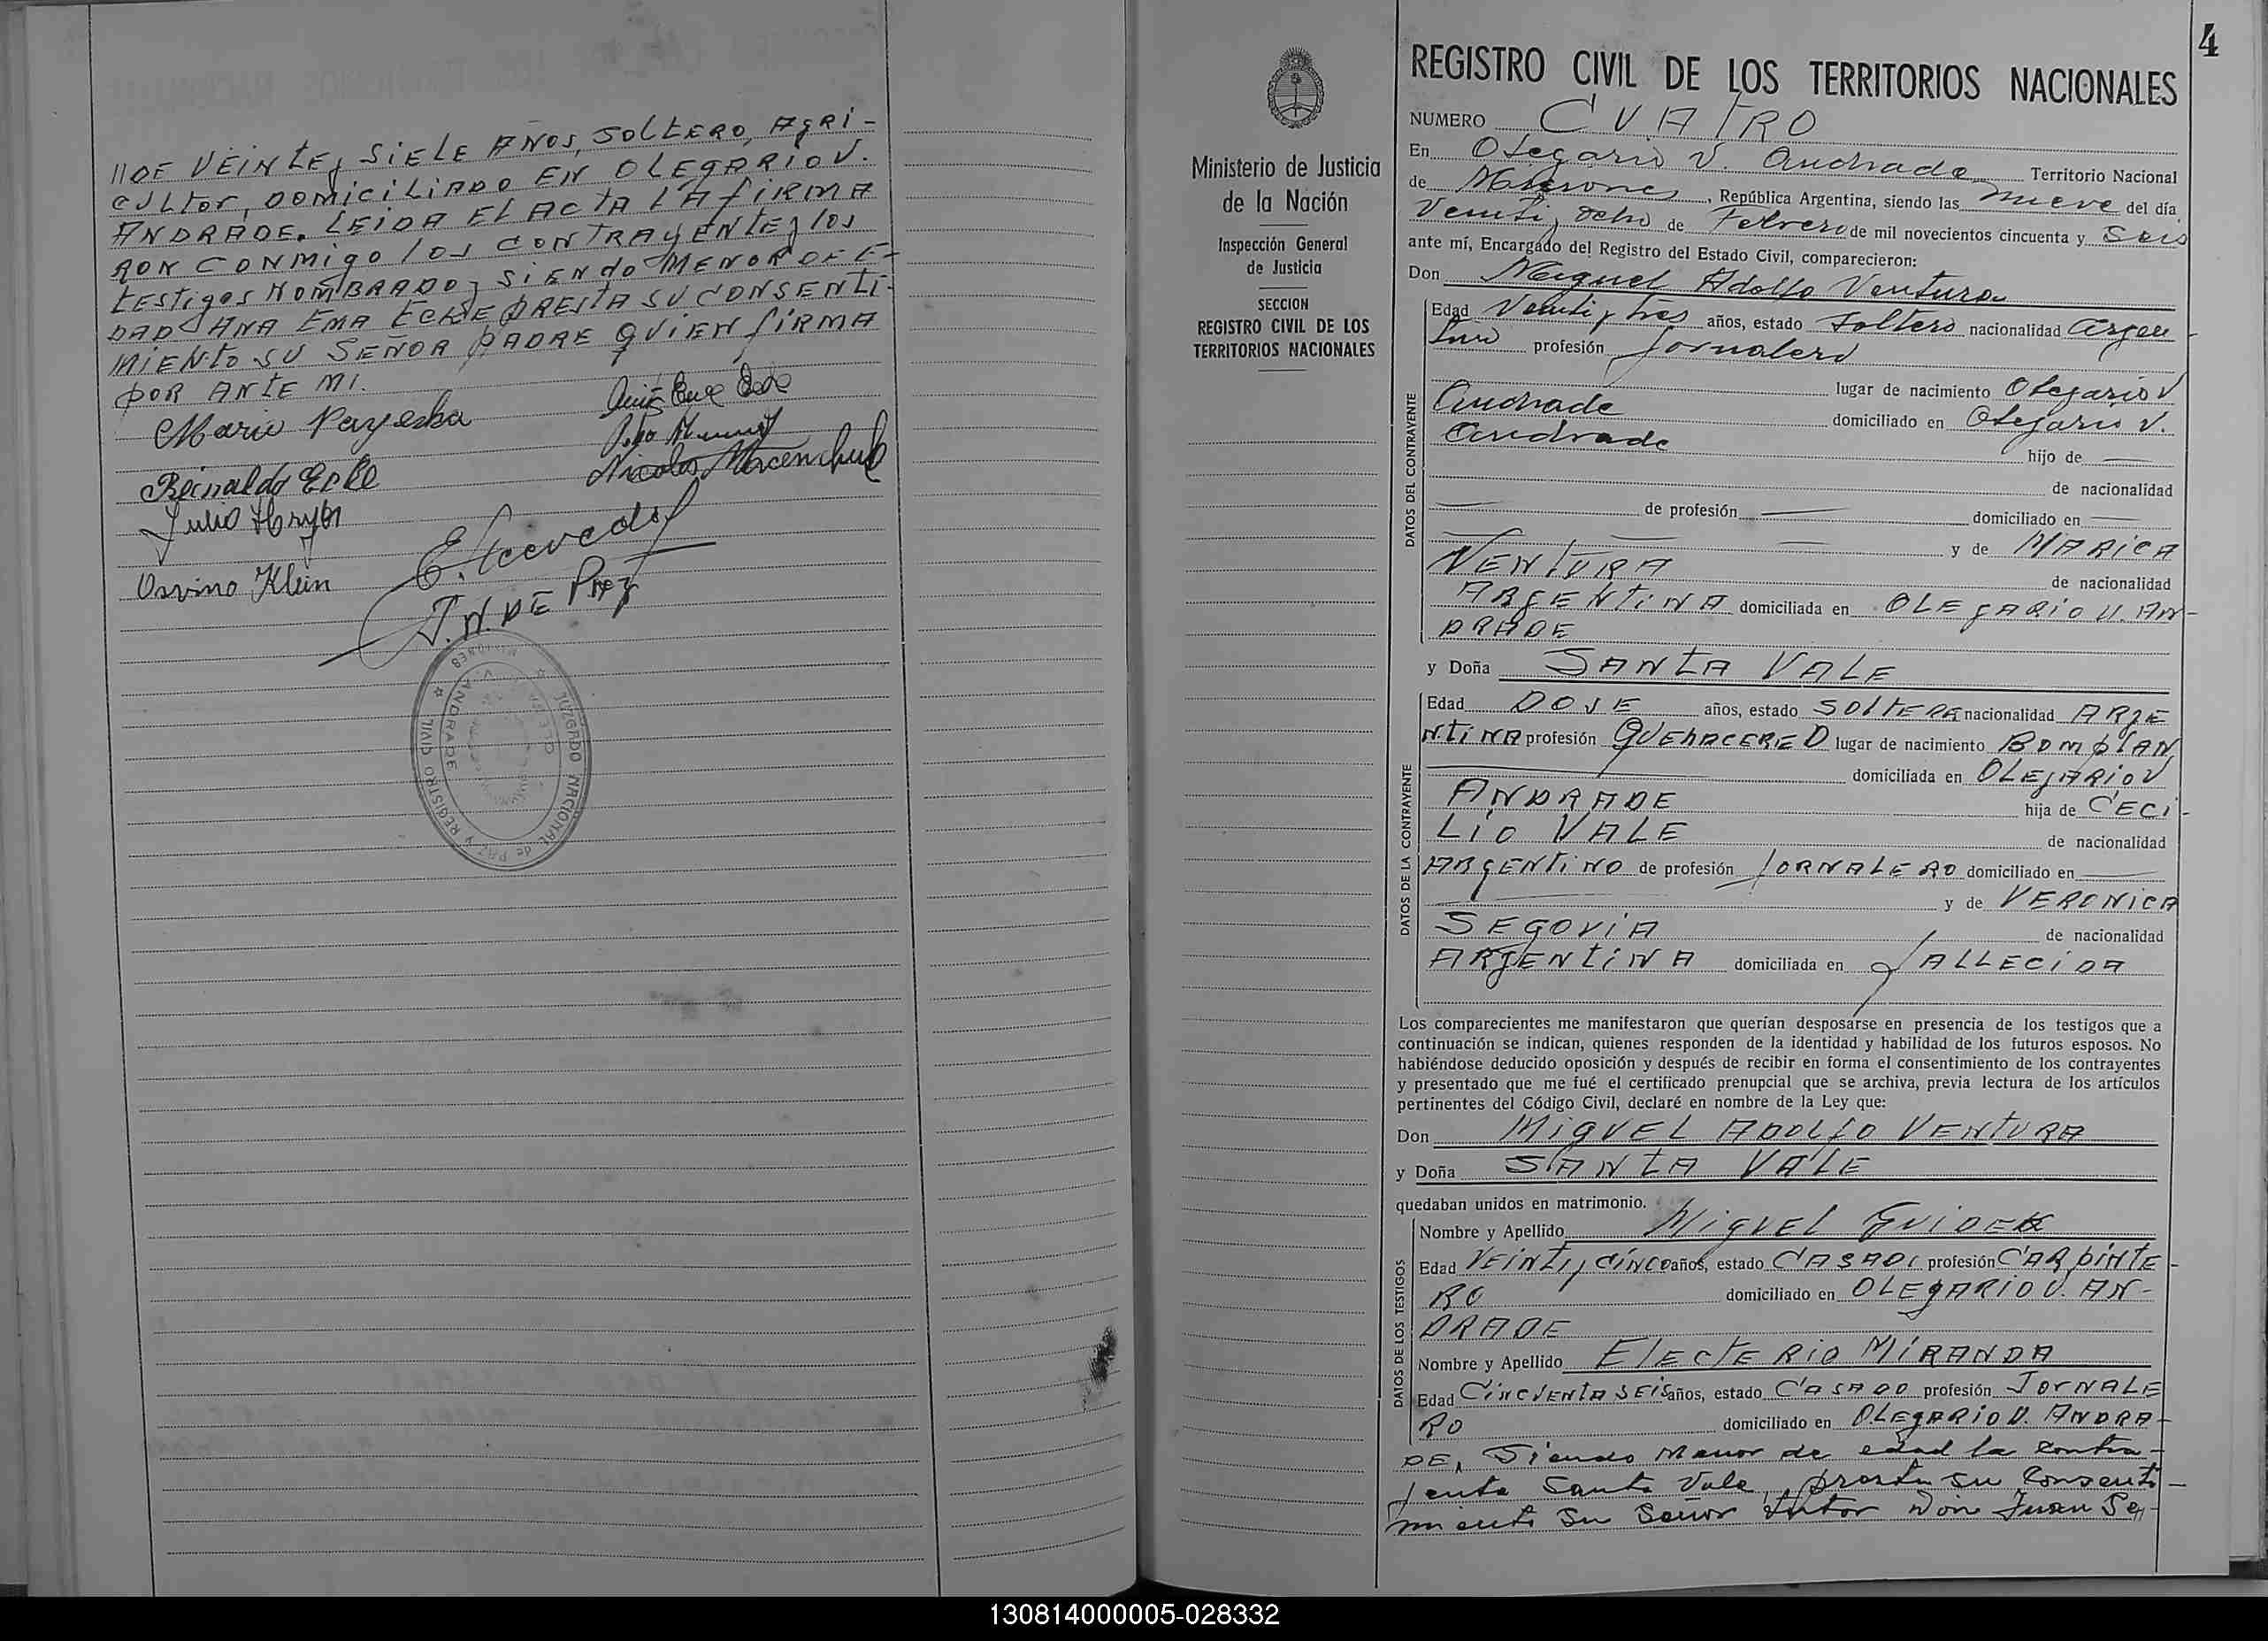 //DE VEINTE y SIETE AÑOS, SOLTERO, AGRI-
CULTOR, DOMICILIADO EN OLEGARIO V.
ANDRADE. LEIDA EL ACTA LA FIRMA
RON CONMIGO LOS CONTRAYENTE y LOS
TESTIGOS NOMBRADO y SIENDO MENOR DE E-
DAD ANA EMA ECKE PRESTA SU CONSENTI-
MIENTO SU SEÑOR PADRE QUIEN FIRMA
POR ANTE MI.
Mario Payeska
Reinaldo Ecke
Nicolas
Julio Hryn
Osvino Klein
E. Acevedo
J. N. DE Paz
JUZGADO NACIONAL de PAZ y REGISTRO CIVIL
ANDRADE
MISIONES
4
Ministerio de Justicia
de la Nación
Inspección General
de Justicia
SECCION
REGISTRO CIVIL DE LOS
TERRITORIOS NACIONALES
REGISTRO CIVIL DE LOS TERRITORIOS NACIONALES
NUMERO CUATRO
En Olegario V. Andrade Territorio Nacional
de Misiones, República Argentina, siendo las nueve del día
Veinti y ocho de Febrero de mil novecientos cincuenta y Seis
ante mí, Encargado del Registro del Estado Civil, comparecieron:
Don Miguel Adolfo Ventura
DATOS DEL CONTRAYENTE
Edad Veinti y tres años, estado Soltero nacionalidad Argen-
tino profesión Jornalero
lugar de nacimiento Olegario V
Andrade domiciliado en Olegario V.
Andrade hijo de
de nacionalidad
de profesión domiciliado en
y de MARICA
VENTURA de nacionalidad
ARGENTINA domiciliada en OLEGARIO V. AN-
DRADE
y Doña SANTA VALE
DATOS DE LA CONTRAYENTE
Edad DOSE años, estado SOLTERA nacionalidad ARGE
NTINA profesión QUEHACERE D lugar de nacimiento BOMPLAN
domiciliada en OLEGARIO V
ANDRADE hija de CECI-
LIO VALE de nacionalidad
ARGENTINO de profesión JORNALERO domiciliado en
y de VERONICA
SEGOVIA de nacionalidad
ARGENTINA domiciliada en FALLECIDA
Los comparecientes me manifestaron que querían desposarse en presencia de los testigos que a
continuación se indican, quienes responden de la identidad y habilidad de los futuros esposos. No
habiéndose deducido oposición y después de recibir en forma el consentimiento de los contrayentes
y presentado que me fué el certificado prenupcial que se archiva, previa lectura de los artículos
pertinentes del Código Civil, declaré en nombre de la Ley que:
Don MIGUEL ADOLFO VENTURA
y Doña SANTA VALE
quedaban unidos en matrimonio.
DATOS DE LOS TESTIGOS
Nombre y Apellido MIGUEL GUIDEK
Edad VEINTI y CINCO años, estado CASADO profesión CARPINTE-
RO domiciliado en OLEGARIO V. AN-
DRADE
Nombre y Apellido ELECTERIO MIRANDA
Edad CINCUENTA SEIS años, estado CASADO profesión JORNALE
RO domiciliado en OLEGARIO V. ANDRA-
DE, Siendo Menor de edad la contra-
yente Santa Vale, presta su Consenti-
miento su Señor tutor Don Juan Se-
130814000005-028332